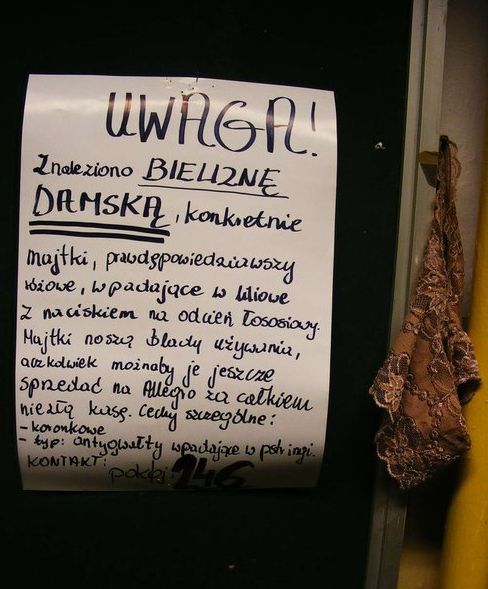 UWAGA!
Znaleziono BIELIZNĘ
DAMSKĄ, konkretnie
majtki, prawdępowiedziawszy
różowe, wpadające w liliowe
z naciskiem na odcień łososiowy.
Majtki noszą ślady używania,
aczkolwiek możnaby je jeszcze
sprzedać na Allegro za całkiem
niezłą kasę. Cechy szczególne:
- koronkowe
- typ: antygwałty wpadające w pstringi.
KONTAKT:
pokój 246